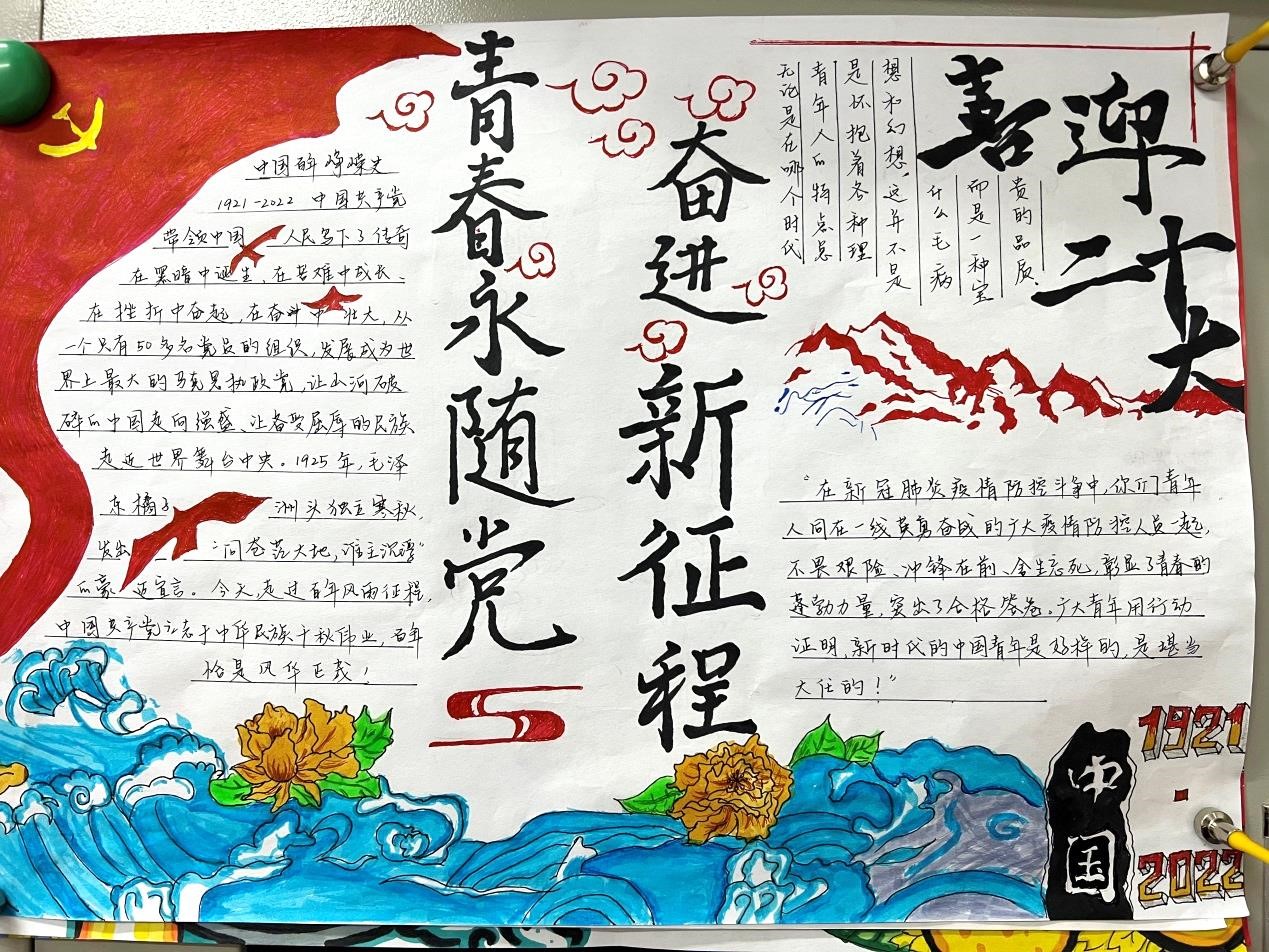 青春永随党
奋进新征程
喜迎
二十大
中国的峥嵘史
1921-2022 中国共产党
带领中国人民写下了传奇
在黑暗中诞生,在苦难中成长、
在挫折中奋起,在奋斗中壮大,从
一个只有50多名党员的组织,发展成为世
界上最大的马克思执政党,让山河破
碎的中国走向强盛、让备受屈辱的民族
走近世界舞台中央。1925年,毛泽
东橘子洲头独立寒秋,
发出“问苍茫大地,谁主沉浮”
的豪迈宣言。今天,走过百年风雨征程,
中国共产党立志于中华民族千秋伟业,百年
恰是风华正茂!
无论是在哪个时代
青年人的特点总
是怀抱着各种理
想和幻想,这并不是
什么毛病
而是一种宝
贵的品质.
“在新冠肺炎疫情防控斗争中,你们青年
人同在一线英勇奋战的广大疫情防控人员一起,
不畏艰险、冲锋在前、舍生忘死,彰显了青春的
蓬勃力量,交出了合格答卷。广大青年用行动
证明,新时代的中国青年是好样的,是堪当
大任的!”
中国
1921
-
2022